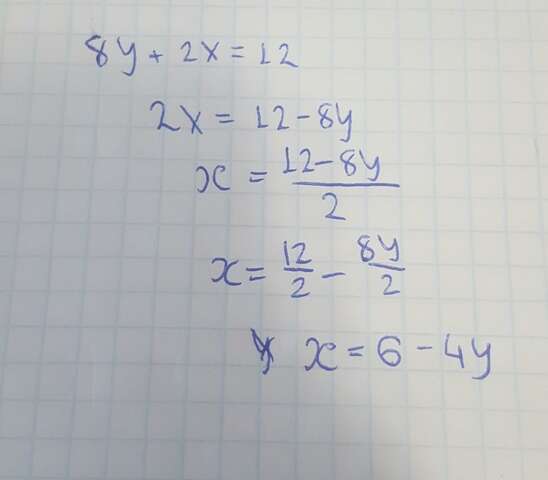 8y + 2x = 12
2x = 12 - 8y
x = (12 - 8y)/2
x = 12/2 - 8y/2
x = 6 - 4y